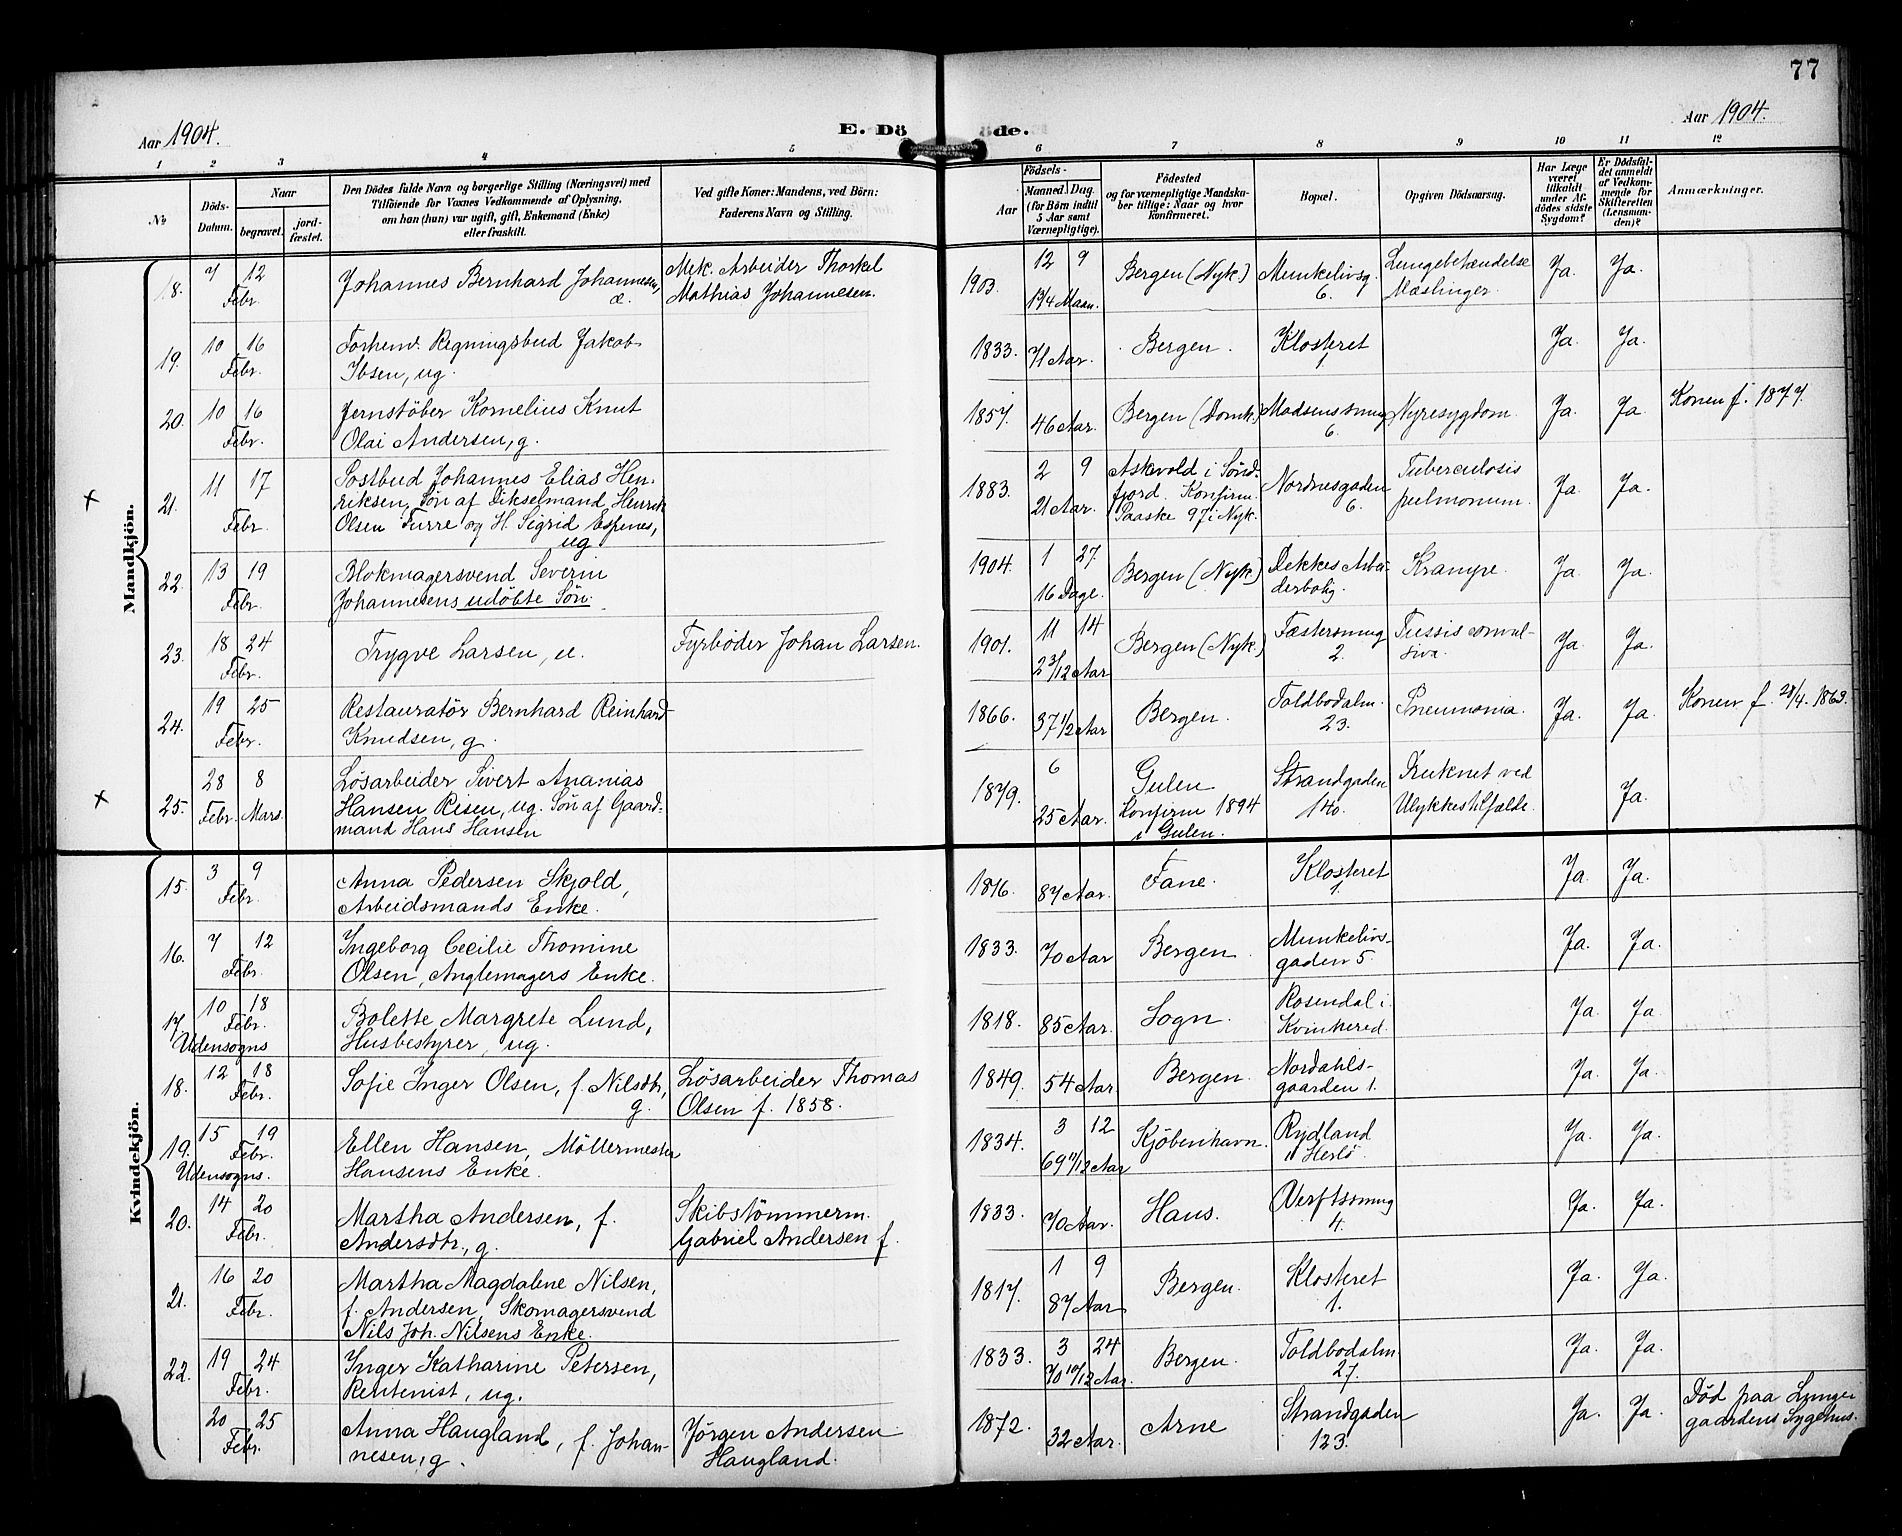 77
Aar 1904.
E. Dö öde.
Aar 1904.
1 2 3 4 5 6 7 8 9 10 11 12
No
Döds-Datum.
Naar begravet. jordfæstet.
Den Dödes fulde Navn og borgerlige Stilling (Næringsvei) med
Tilföiende for Voxnes Vedkommende af Oplysning,
om han (hun) var ugift, gift, Enkemand (Enke)
eller fraskilt.
Ved gifte Koner: Mandens, ved Börn:
Faderens Navn og Stilling.
Födsels-
Aar Maaned. Dag.
(for Börn indtil
5 Aar samt
Værnepligtige).
Födested
og for værnepligtige Mandska-
ber tillige: Naar og hvor
konfirmeret.
Bopæl.
Opgiven Dödsaarsag.
Har Læge
været
tilkaldt
under Af-
dödes sidste
Sygdom?
Er Dödsfal-
det anmeldt
af Vedkom-
mende for
Skifteretten
(Lensman-
den)?
Anmærkninger.
Mandkjön.
18. 7 12 Febr. Johannes Bernhard Johannesen, æ. Mek. Arbeider Thorkel
Mathias Johannesen. 1903. 12 9 1 3/4 Maan. Bergen (Nyk.) Munkelivsg. 6. Lungebetændelse
Mæslinger. Ja. Ja.
19. 10 16 Febr. Forhenv. Regningsbud Jakob
Ibsen, ug. 1833. 71 Aar. Bergen. Klosteret 1. Ja. Ja.
20. 10 16 Febr. Jernstöber Kornelius Knut
Olai Andersen, g. 1857. 46 Aar. Bergen (Domk.) Madsensmug 6. Nyresygdom. Ja. Ja Konen f. 1877.
x 21. 11 17 Febr. Postbud Johannes Elias Hen-
riksen, Søn af Dikselmand Henrik
Olsen Furre og H. Sigrid Espenes,
ug. 1883. 2 9 21 Aar. Askvold i Sönd-
fjord. Konfirm.
Paaske 97 i Nyk. Nordnesgaden 6. Tuberculosis
pulmonum. Ja. Ja.
22. 13 19 Febr. Blokmagersvend Severin
Johannesens udöbte Sön. 1904. 1 27 16 Dage. Bergen (Nyk.) Dekkes Arbei-
derbolig. Krampe. Ja. Ja.
23. 18 24 Febr. Trygve Larsen, æ. Fyrböder Johan Larsen. 1901. 11 14 2 3/12 Aar Bergen (Nyk.) Fæstersmug 2. Tussis convul-
siva. Ja. Ja.
24. 19 25 Febr. Restauratör Bernhard Reinhard
Knudsen, g. 1866. 37 1/2 Aar Bergen. Toldbodalm. 23. Pneumonia. Ja. Ja. Konen f. 28/4. 1863.
x 25. 28 Febr. 8 Mars. Lösarbeider Sivert Ananias
Hansen Risen, ug. Sön af Gaard-
mand Hans Hansen 1879. 6 25 Aar. Gulen
Konfirm 1894
i Gulen. Strandgaden 140. Druknet ved
Ulykkestilfælde. Ja.
Kvindekjön.
15. 3 9 Febr. Anna Pedersen Skjold,
Arbeidsmands Enke. 1816. 87 Aar. Fane. Klosteret 1. Ja. Ja.
16. 7 12 Febr. Ingeborg Cecilie Thomine
Olsen, Anglemagers Enke. 1833. 70 Aar Bergen. Munkelivs-
gaden 5. Ja. Ja.
17. Udensogns 10 18 Febr. Bolette Margrete Lund,
Husbestyrer, ug. 1818. 85 Aar. Sogn. Rosendal i
Kvinhered. Ja. Ja
18. 12 18 Febr. Sofie Inger Olsen, f. Nilsdtr,
g. Lösarbeider Thomas
Olsen f. 1858. 1849. 54 Aar. Bergen. Nordahls-
gaarden 1. Ja. Ja.
19. Udensogns. 15 19 Febr. Ellen Hansen, Möllermester
Hansens Enke. 1834. 3 12 69 11/12 Aar Kjöbenhavn. Rydland
i Herlö. Ja. Ja.
20. 14 20 Febr. Martha Andersen, f.
Andersdtr., g. Skibstömmerm.
Gabriel Andersen f. 1833. 70 Aar. Haus. Verftssmug 4. Ja. Ja.
21. 16 20 Febr. Martha Magdalene Nilsen,
f. Andersen, Skomagersvend
Nils Joh. Nilsens Enke. 1817. 1 9 87 Aar Bergen. Klosteret 1. Ja. Ja.
22. 19 24 Febr. Inger Katharine Petersen,
Rentenist, ug. 1833. 3 24 70 10/12 Aar. Bergen. Toldbodalm. 27. Ja. Ja.
20 25 Febr. Anna Haugland, f. Johan-
nesen, g. Jörgen Andersen
Haugland. 1872. 32 Aar. Arne Strandgaden 123. Ja. Ja. Död paa Lunge-
gaardens Sygehus.